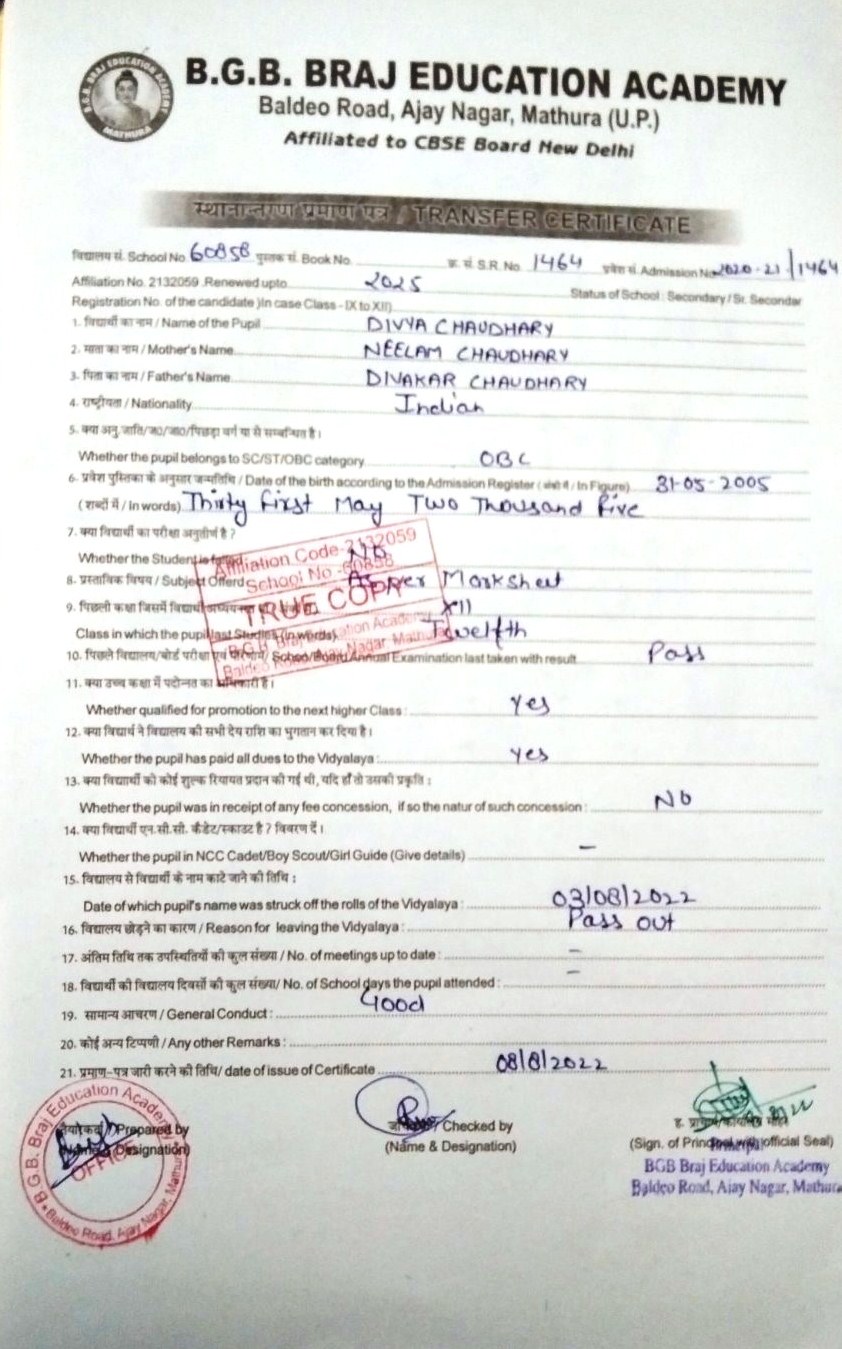 B.G.B. BRAJ EDUCATION ACADEMY
MATHURA
B.G.B. BRAJ EDUCATION ACADEMY
Baldeo Road, Ajay Nagar, Mathura (U.P.)
Affiliated to CBSE Board New Delhi
स्थानान्तरण प्रमाण पत्र / TRANSFER CERTIFICATE
विद्यालय सं. School No. 60858 पुस्तक सं. Book No. क्र. सं. S.R. No. 1464 प्रवेश सं. Admission No. 2020-21/1464
Affiliation No. 2132059 .Renewed upto 2025 Status of School : Secondary / Sr. Secondar
Registration No. of the candidate )In case Class - IX to XII)
1. विद्यार्थी का नाम / Name of the Pupil DIVYA CHAUDHARY
2. माता का नाम / Mother's Name NEELAM CHAUDHARY
3. पिता का नाम / Father's Name DIVAKAR CHAUDHARY
4. राष्ट्रीयता / Nationality Indian
5. क्या अनु.जाति/ज0/जा0/पिछड़ा वर्ग या से सम्बन्धित है।
Whether the pupil belongs to SC/ST/OBC category OBC
6. प्रवेश पुस्तिका के अनुसार जन्मतिथि / Date of the birth according to the Admission Register ( अंको में / In Figure) 31-05-2005
( शब्दों में / In words) Thirty first May Two Thousand five
7. क्या विद्यार्थी का परीक्षा अनुतीर्ण है ?
Whether the Student is failed No
8. प्रस्ताविक विषय / Subject Offerd As per Marksheet
9. पिछली कक्षा जिसमें विद्यार्थी XII
Class in which the pupil last Studies (in words) Twelfth
10. पिछले विद्यालय/बोर्ड परीक्षा एवं परिणाम/ School/Board Annual Examination last taken with result Pass
11. क्या उच्च कक्षा में पदोन्नत का अधिकारी है।
Whether qualified for promotion to the next higher Class : yes
12. क्या विद्यार्थ ने विद्यालय की सभी देय राशि का भुगतान कर दिया है।
Whether the pupil has paid all dues to the Vidyalaya : yes
13. क्या विद्यार्थी को कोई शुल्क रियायत प्रदान की गई थी, यदि हाँ तो उसकी प्रकृति :
Whether the pupil was in receipt of any fee concession, if so the natur of such concession : No
14. क्या विद्यार्थी एन.सी.सी. कैडेट/स्काउट है ? विवरण दें।
Whether the pupil in NCC Cadet/Boy Scout/Girl Guide (Give details) –
15. विद्यालय से विद्यार्थी के नाम काटे जाने की तिथि :
Date of which pupil's name was struck off the rolls of the Vidyalaya : 03/08/2022
16. विद्यालय छोड़ने का कारण / Reason for leaving the Vidyalaya : Pass out
17. अंतिम तिथि तक उपस्थितियों की कुल संख्या / No. of meetings up to date : –
18. विद्यार्थी की विद्यालय दिवसों की कुल संख्या/ No. of School days the pupil attended : –
19. सामान्य आचरण / General Conduct : Good
20. कोई अन्य टिप्पणी / Any other Remarks :
21. प्रमाण-पत्र जारी करने की तिथि/ date of issue of Certificate 08/8/2022
Affiliation Code-2132059
School No -60858
TRUE COPY
B.G.B. Braj Education Academy
Baldeo Road, Ajay Nagar Mathura
Prepared by
(Name & Designation)
Checked by
(Name & Designation)
(Sign. of Principal with official Seal)
Principal
BGB Braj Education Academy
Baldeo Road, Ajay Nagar, Mathura
B.G.B. Braj Education Academy
OFFICE
Baldeo Road, Ajay Nagar, Mathura